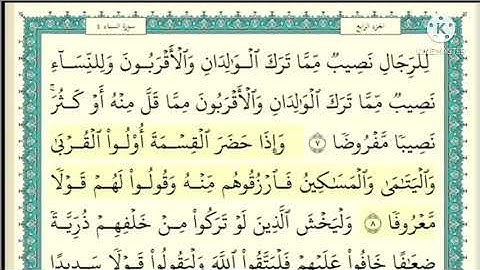 الجزء الرابع
سورة النساء ٤
لِّلرِّجَالِ نَصِيبٌ مِّمَّا تَرَكَ الْوَالِدَانِ وَالْأَقْرَبُونَ وَلِلنِّسَاءِ
نَصِيبٌ مِّمَّا تَرَكَ الْوَالِدَانِ وَالْأَقْرَبُونَ مِمَّا قَلَّ مِنْهُ أَوْ كَثُرَ ۚ
نَصِيبًا مَّفْرُوضًا ٧ وَإِذَا حَضَرَ الْقِسْمَةَ أُولُوا الْقُرْبَىٰ
وَالْيَتَامَىٰ وَالْمَسَاكِينُ فَارْزُقُوهُم مِّنْهُ وَقُولُوا لَهُمْ قَوْلًا
مَّعْرُوفًا ٨ وَلْيَخْشَ الَّذِينَ لَوْ تَرَكُوا مِنْ خَلْفِهِمْ ذُرِّيَّةً
ضِعَافًا خَافُوا عَلَيْهِمْ فَلْيَتَّقُوا اللَّهَ وَلْيَقُولُوا قَوْلًا سَدِيدًا